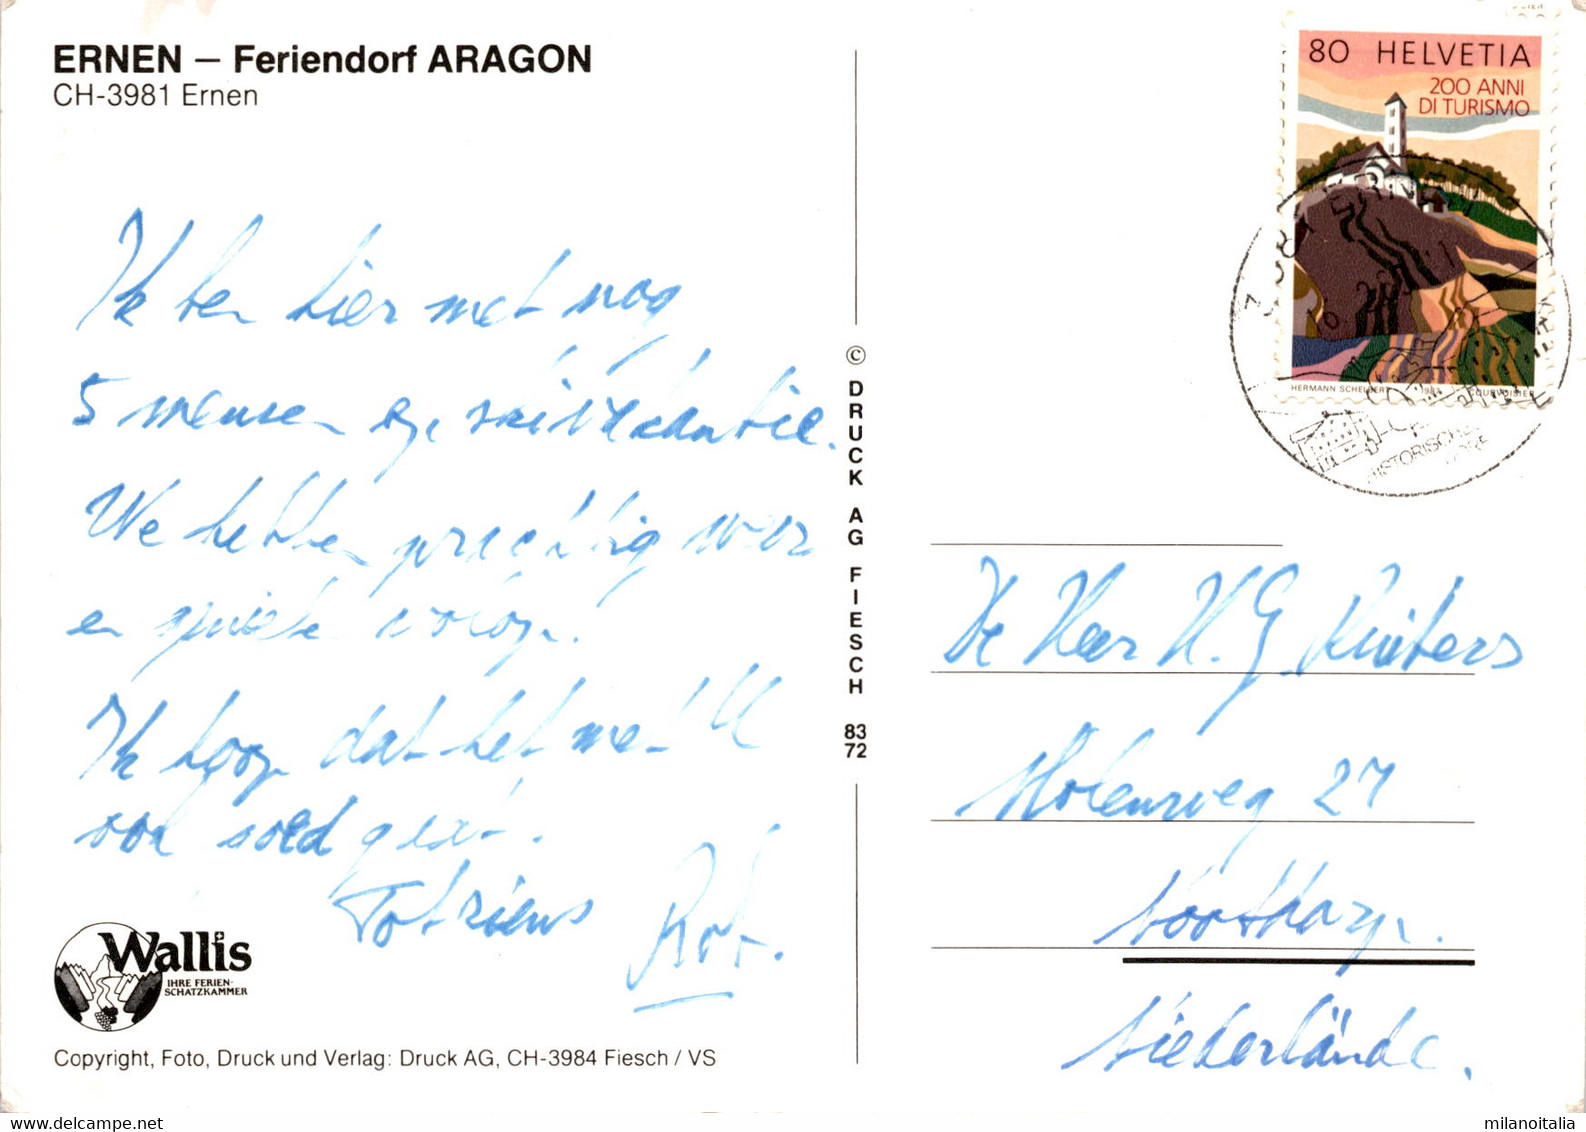 ERNEN – Feriendorf ARAGON
CH-3981 Ernen
Ik ben hier met nog
5 mensen op skivakantie.
We hebben prachtig weer
en
Ik hoop dat het met U
ook goed gaat.
Tot ziens
Rob.
Wallis
IHRE FERIEN-
SCHATZKAMMER
Copyright, Foto, Druck und Verlag: Druck AG, CH-3984 Fiesch / VS
© DRUCK AG FIESCH 83 72
80 HELVETIA
200 ANNI
DI TURISMO
HERMANN SCHELBERT 1987 COURVOISIER
3981 ERNEN
HISTORISCHE
De Heer H. G. Ruiters
Molenweg 27
Niederlände.
milanoitalia